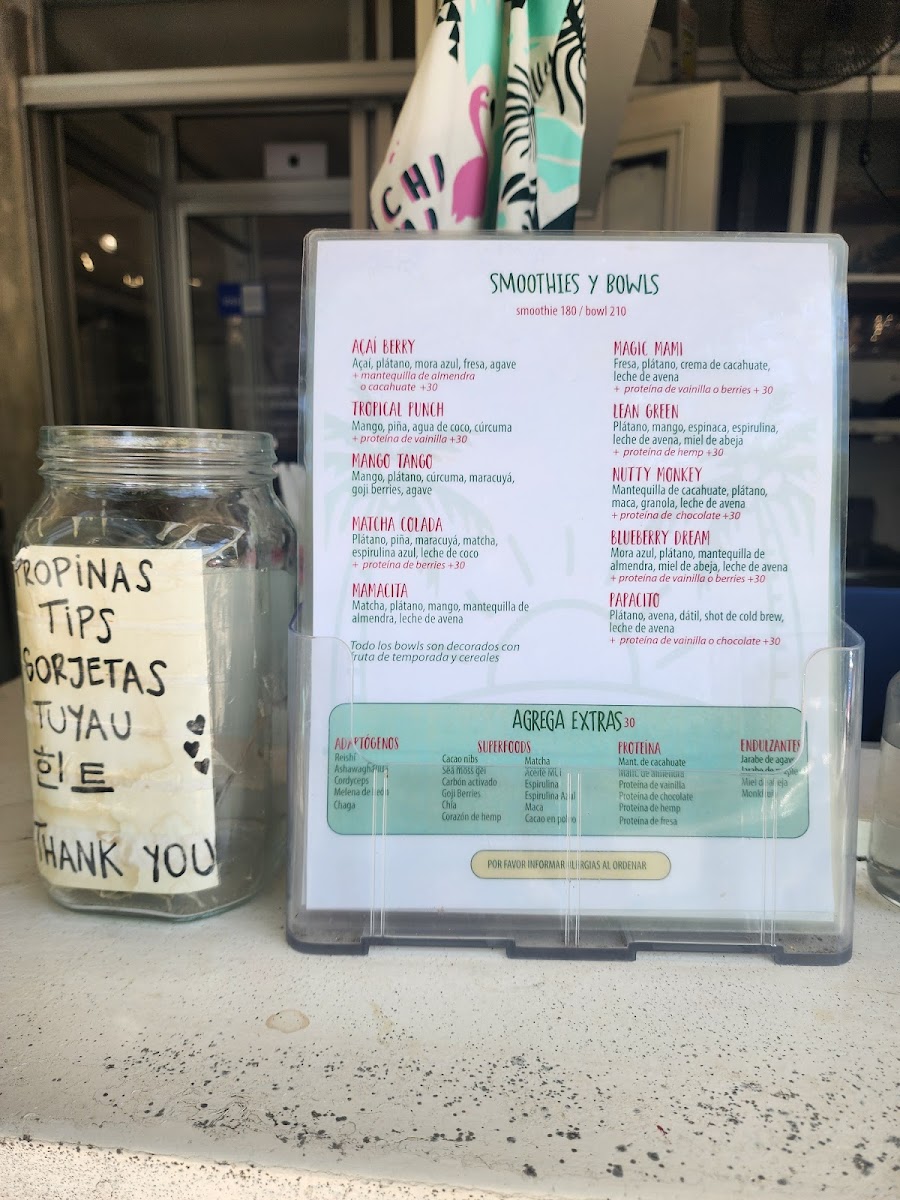 CHI
PROPINAS
TIPS
GORJETAS
TUYAU
힌트
THANK YOU
SMOOTHIES Y BOWLS
smoothie 180 / bowl 210
AÇAÍ BERRY
Açaí, plátano, mora azul, fresa, agave
+ mantequilla de almendra
o cacahuate +30
TROPICAL PUNCH
Mango, piña, agua de coco, cúrcuma
+ proteína de vainilla +30
MANGO TANGO
Mango, plátano, cúrcuma, maracuyá,
goji berries, agave
MATCHA COLADA
Plátano, piña, maracuyá, matcha,
espirulina azul, leche de coco
+ proteína de berries +30
MAMACITA
Matcha, plátano, mango, mantequilla de
almendra, leche de avena
Todo los bowls son decorados con
fruta de temporada y cereales
MAGIC MAMI
Fresa, plátano, crema de cacahuate,
leche de avena
+ proteína de vainilla o berries + 30
LEAN GREEN
Plátano, mango, espinaca, espirulina,
leche de avena, miel de abeja
+ proteína de hemp +30
NUTTY MONKEY
Mantequilla de cacahuate, plátano,
maca, granola, leche de avena
+ proteína de chocolate +30
BLUEBERRY DREAM
Mora azul, plátano, mantequilla de
almendra, miel de abeja, leche de avena
+ proteína de vainilla o berries +30
PAPACITO
Plátano, avena, dátil, shot de cold brew,
leche de avena
+ proteína de vainilla o chocolate +30
AGREGA EXTRAS 30
ADAPTÓGENOS
Reishi
Ashawaghanda
Cordyceps
Melena de león
Chaga
SUPERFOODS
Cacao nibs
Sea moss gel
Carbón activado
Goji Berries
Chía
Corazón de hemp
Matcha
Aceite MCT
Espirulina
Espirulina Azul
Maca
Cacao en polvo
PROTEÍNA
Mant. de cacahuate
Mant. de almendra
Proteína de vainilla
Proteína de chocolate
Proteína de hemp
Proteína de fresa
ENDULZANTES
Jarabe de agave
Jarabe de
Miel de abeja
POR FAVOR INFORMAR ALERGIAS AL ORDENAR